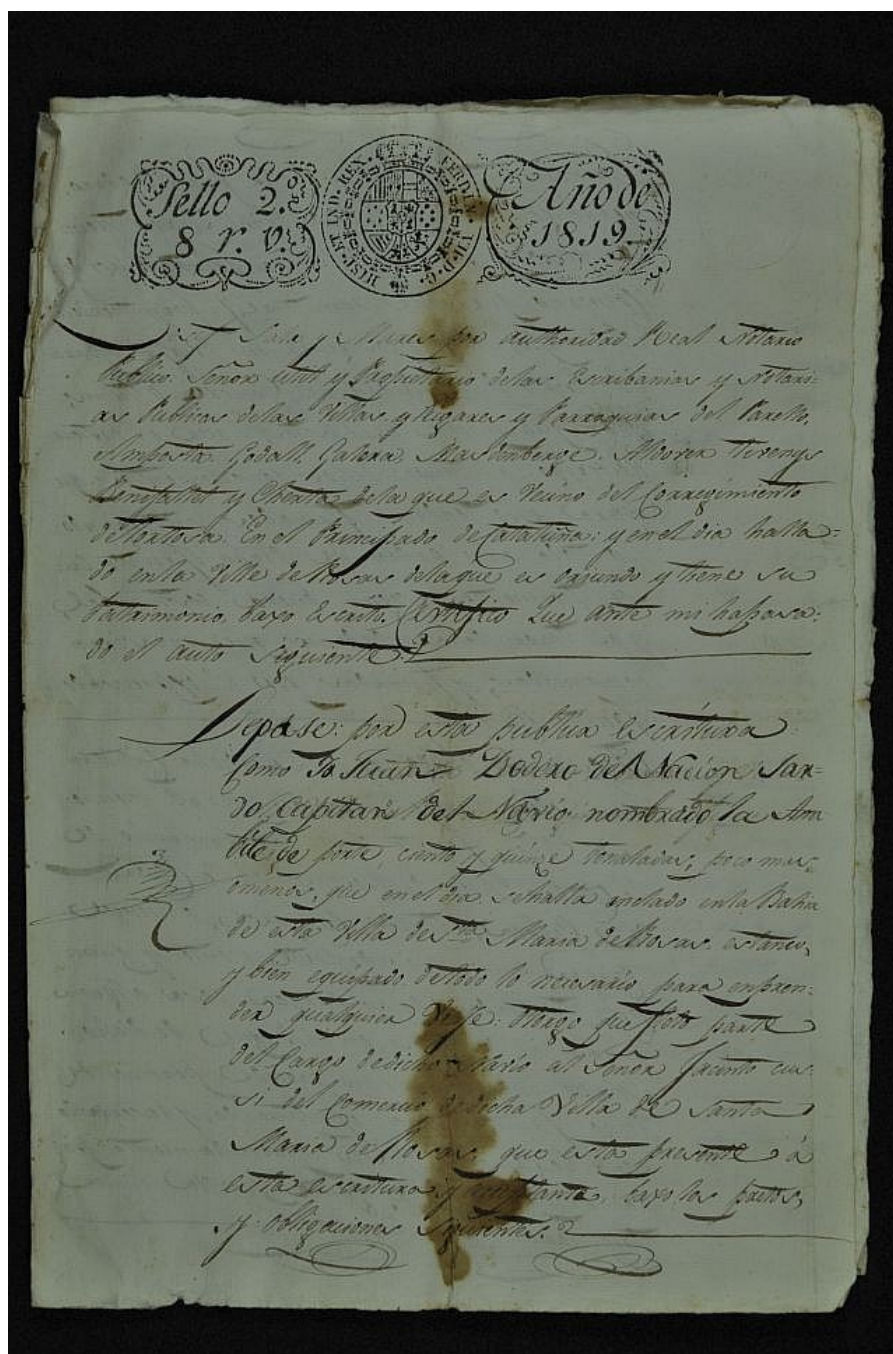 Sello 2.º
8 r. v.
HISP. ET IND. REX. FERDIN. VII. D. G.
Año de
1819.
Sala y por authoridad Real Notario
Publico. Señor util y Propietario delas Escribanias y Notari=
as Publicas delas Villas, y lugares y Parroquias del Parello,
Amposta, Godall, Galera, Masdenberge, Aldover Tivenys
Benifallet y Cherta dela que es Vecino del Corregimiento
de Tortosa. En el Principado de Cataluña: y en el dia halla=
do en la Ville de Rosas dela que es oriundo y tiene su
Patrimonio, baxo Escrito. Certifico Que ante mi ha pasa=
do el auto siguiente.
Sepase: por esta publica escritura
Como Yo Juan Dodero del Nacion Sar=
do, Capitan del Navio nombrado la Ama
bile de porte, ciento y quinze tonaladas, poco mas,
ó menos, que en el dia se halla anclado en la Bahia
de esta Villa de Sta. Maria de Rosas, estanco,
y bien equipado de todo lo necesario para empren=
der qualquier Viaje: Otorgo que fleto parte
del Cargo de dicho Navio al Señor Jacinto cu=
si del Comercio de dicha Villa de Santa
Maria de Rosas, que esta presente á
esta escritura y aceptante, baxo los pactos,
y obligaciones siguientes.